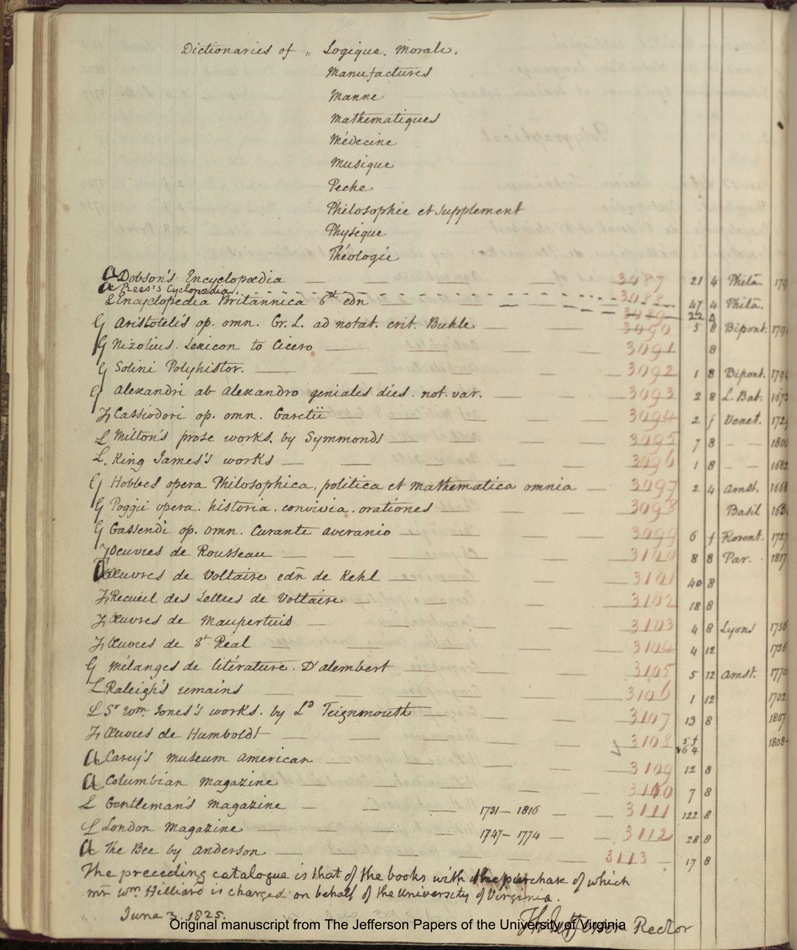 Dictionaries of „ Logique. Morale.
Manufactures
Marine
Mathematiques
Médecine
Musique
Peche
Philosophie et supplement
Physique
Théologie
a Dobson's Encyclopædia — 3087 21 4 Phila. 179
a Rees's Cyclopædia. 3088 47 4 Phila.
L Encyclopedia Britannica 6th edn 3089 22 4
G Aristotelis op. omn. Gr. L. ad notat. crit. Buhle — 3090 5 8 Bipont. 179
G Nizolius. Lexicon to Cicero — 3091 8
G Solini Polyhistor. — 3092 1 8 Bipont. 1794
G Alexandri ab Alexandro geniales dies. not. var. 3093 2 8 L. Bat. 1673
Fr Cassiodori op. omn. Garetii — 3094 2 f Venet. 1729
L Milton's prose works. by Symmonds 3095 7 8 — — 180
L. King James's works — 3096 1 8 — — 1682
G Hobbes opera Philosophica, politica et mathematica omnia — 3097 2 4 Amst. 1668
G Poggii opera. historia. convivia. orationes 3098 Basil 153
G Gassendi op. omn. Curante averanio — 3099 6 f Florent. 1727
Fr Oeuvres de Rousseau — 3100 8 8 Par. 1817
a Œuvres de Voltaire edn de Kehl — 3101 40 8
Fr Recueil des Lettres de Voltaire — 3102 18 8
Fr Œuvres de Maupertuis — 3103 4 8 Lyons 1756
Fr Œuvres de St Real — 3104 4 12 1726
G Mélanges de literature. D'alembert — 3105 5 12 Amst. 1770
L Raleigh's remains — 3106 1 12 1702
L Sr Wm Jones's works. by Ld Teignmouth — 3107 13 8 1807
Fr Œuvres de Humboldt — 3108 5 f 1808-
a Carey's Museum American — 3109 12 8
a Columbian magazine — 3110 7 8
L Gentleman's Magazine — 1731 – 1816 — 3111 122 8
L London Magazine — 1747 – 1774 — 3112 28 8
a The Bee by Anderson — 3113 — 17 8
The preceding catalogue is that of the books with the purchase of which
mr Wm Hilliard is charged on behalf of the University of Virginia.
June 3. 1825.
Th: Jefferson Rector
Original manuscript from The Jefferson Papers of the University of Virginia